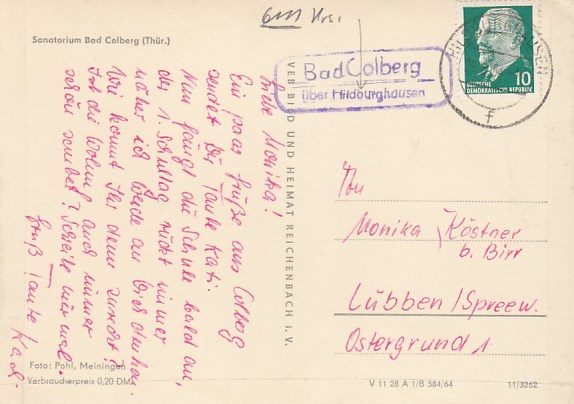 6111 Hbn.
Sanatorium Bad Colberg (Thür.)
Bad Colberg
über Hildburghausen
HILDBURGHAUSEN
f
10
DEUTSCHE
DEMOKRATISCHE REPUBLIK
VEB BILD UND HEIMAT REICHENBACH I. V.
Liebe Monika!
Ein paar Grüße aus Colberg
sendet Dir Tante Kati.
Nun fängt die Schule bald an,
der 1. Schultag rückt immer
näher ich werde an Dich denken.
Wie kommt Ihr denn zurecht?
Ist die Wohng. auch immer
schön sauber? Schreibe mir mal.
Gruß Tante Kati
An
Monika Köstner
b. Birr
Lübben/Spreew.
Ostergrund 1
Foto: Pohl, Meiningen
Verbraucherpreis 0,20 DM
V 11 28 A 1/B 584/64
11/3262